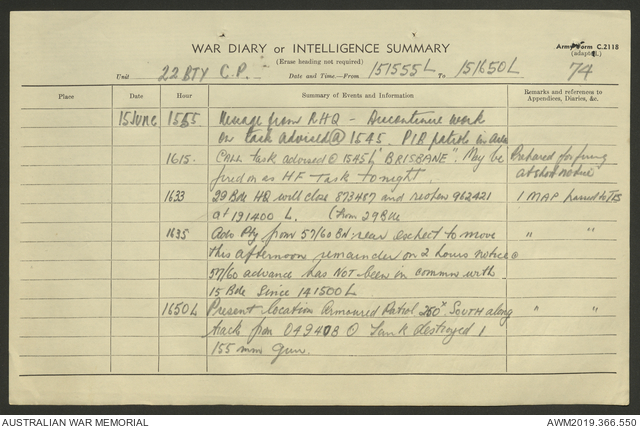 Army Form C.2118
(adapted).
WAR DIARY or INTELLIGENCE SUMMARY
(Erase heading not required)
Unit 22 BTY C.P. Date and Time—From 151555L To 151650L 74
Place Date Hour Summary of Events and Information Remarks and references to Appendices, Diaries, &c.
15 June 1555 Message from RHQ - work
on task advised @ 1545. PIB patrols in area
1615. Call task advised @ 1545h "BRISBANE". May be Prepared for firing
fired on as HF Task tonight. at short notice
1633 29 Bde HQ will close 873487 and reopen 962421 1 MAP passed to
at 191400 L. (from 29 Bde
1635 Adv Pty from 57/60 Bn: rear expect to move " "
this afternoon remainder on 2 hours notice
57/60 advance has NOT been in commn with
15 Bde since 141500L
1650L Present location Armoured Patrol 250x SOUTH along " "
track from 049408 Tank destroyed 1
155 mm Gun.
AUSTRALIAN WAR MEMORIAL AWM2019.366.550